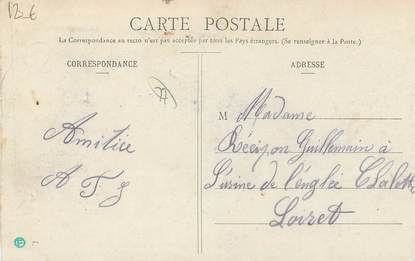 12 €
CARTE POSTALE
La Correspondance au recto n'est pas acceptée par tous les Pays étrangers. (Se renseigner à la Poste.)
CORRESPONDANCE
ADRESSE
M Madame
Guillemain à
Amitice
L'usine de l'englée
A F S
Loiret